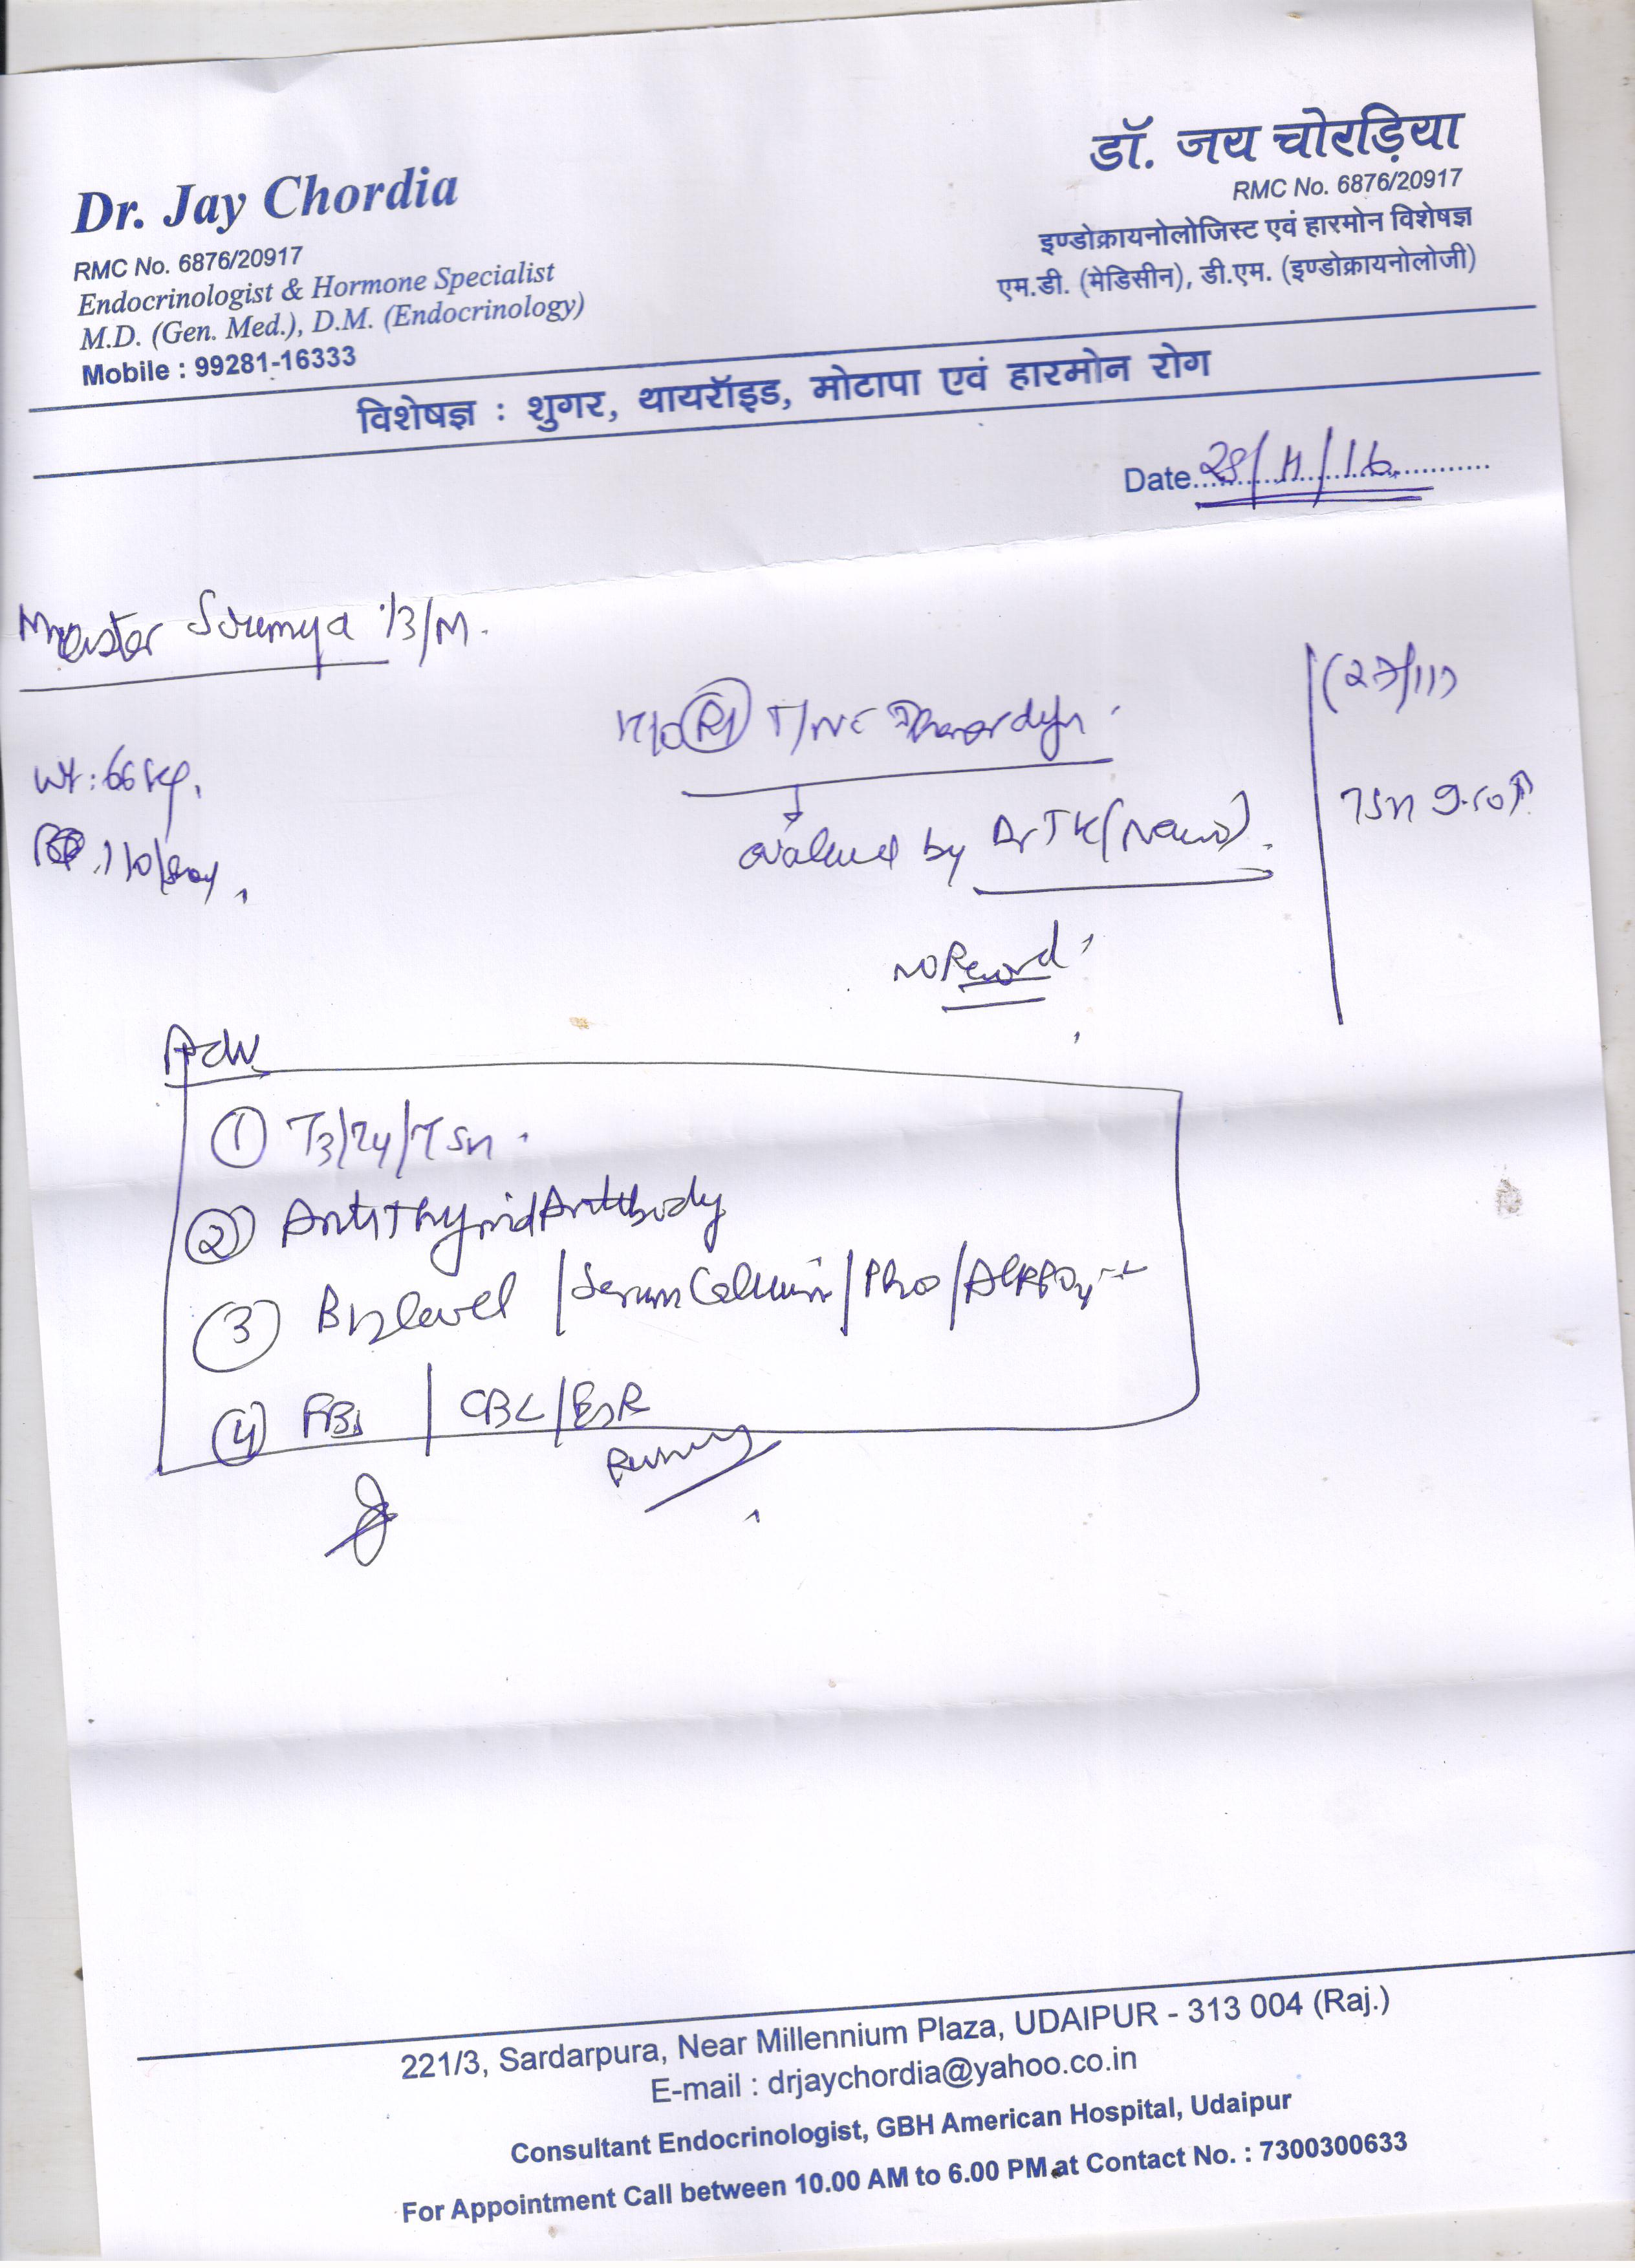 Dr. Jay Chordia
RMC No. 6876/20917
Endocrinologist & Hormone Specialist
M.D. (Gen. Med.), D.M. (Endocrinology)
Mobile : 99281-16333
डॉ. जय चोरड़िया
RMC No. 6876/20917
इण्डोक्रायनोलोजिस्ट एवं हारमोन विशेषज्ञ
एम.डी. (मेडिसीन), डी.एम. (इण्डोक्रायनोलोजी)
विशेषज्ञ : शुगर, थायरॉइड, मोटापा एवं हारमोन रोग
Date 28/11/16
Master 13/M.
Wt: 66 kg.
evalued by Dr TK (Neuro).
No Record
TSH
Adv
① T3/T4/TSH
② Anti Thyroid Antibody
③ B12 level / Serum Calcium / Pho /
④ | CBC/ESR
221/3, Sardarpura, Near Millennium Plaza, UDAIPUR - 313 004 (Raj.)
E-mail : drjaychordia@yahoo.co.in
Consultant Endocrinologist, GBH American Hospital, Udaipur
For Appointment Call between 10.00 AM to 6.00 PM at Contact No. : 7300300633